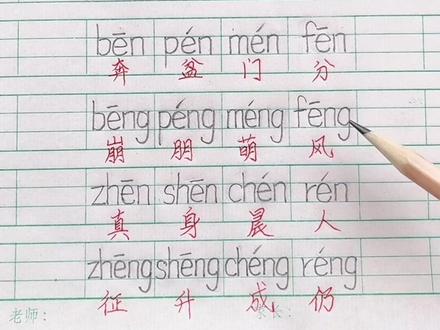 bēn pén mén fēn
奔 盆 门 分
bēng péng méng fēng
崩 朋 萌 风
zhēn shēn chén rén
真 身 晨 人
zhēng shēng chéng réng
征 升 成 仍
老师： 家长：